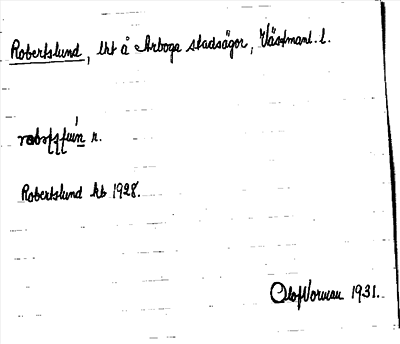 Robertslund, lht å Arboga stadsägor, Västmanl. l.
r.
Robertslund hb 1928.
Olof Norman 1931.